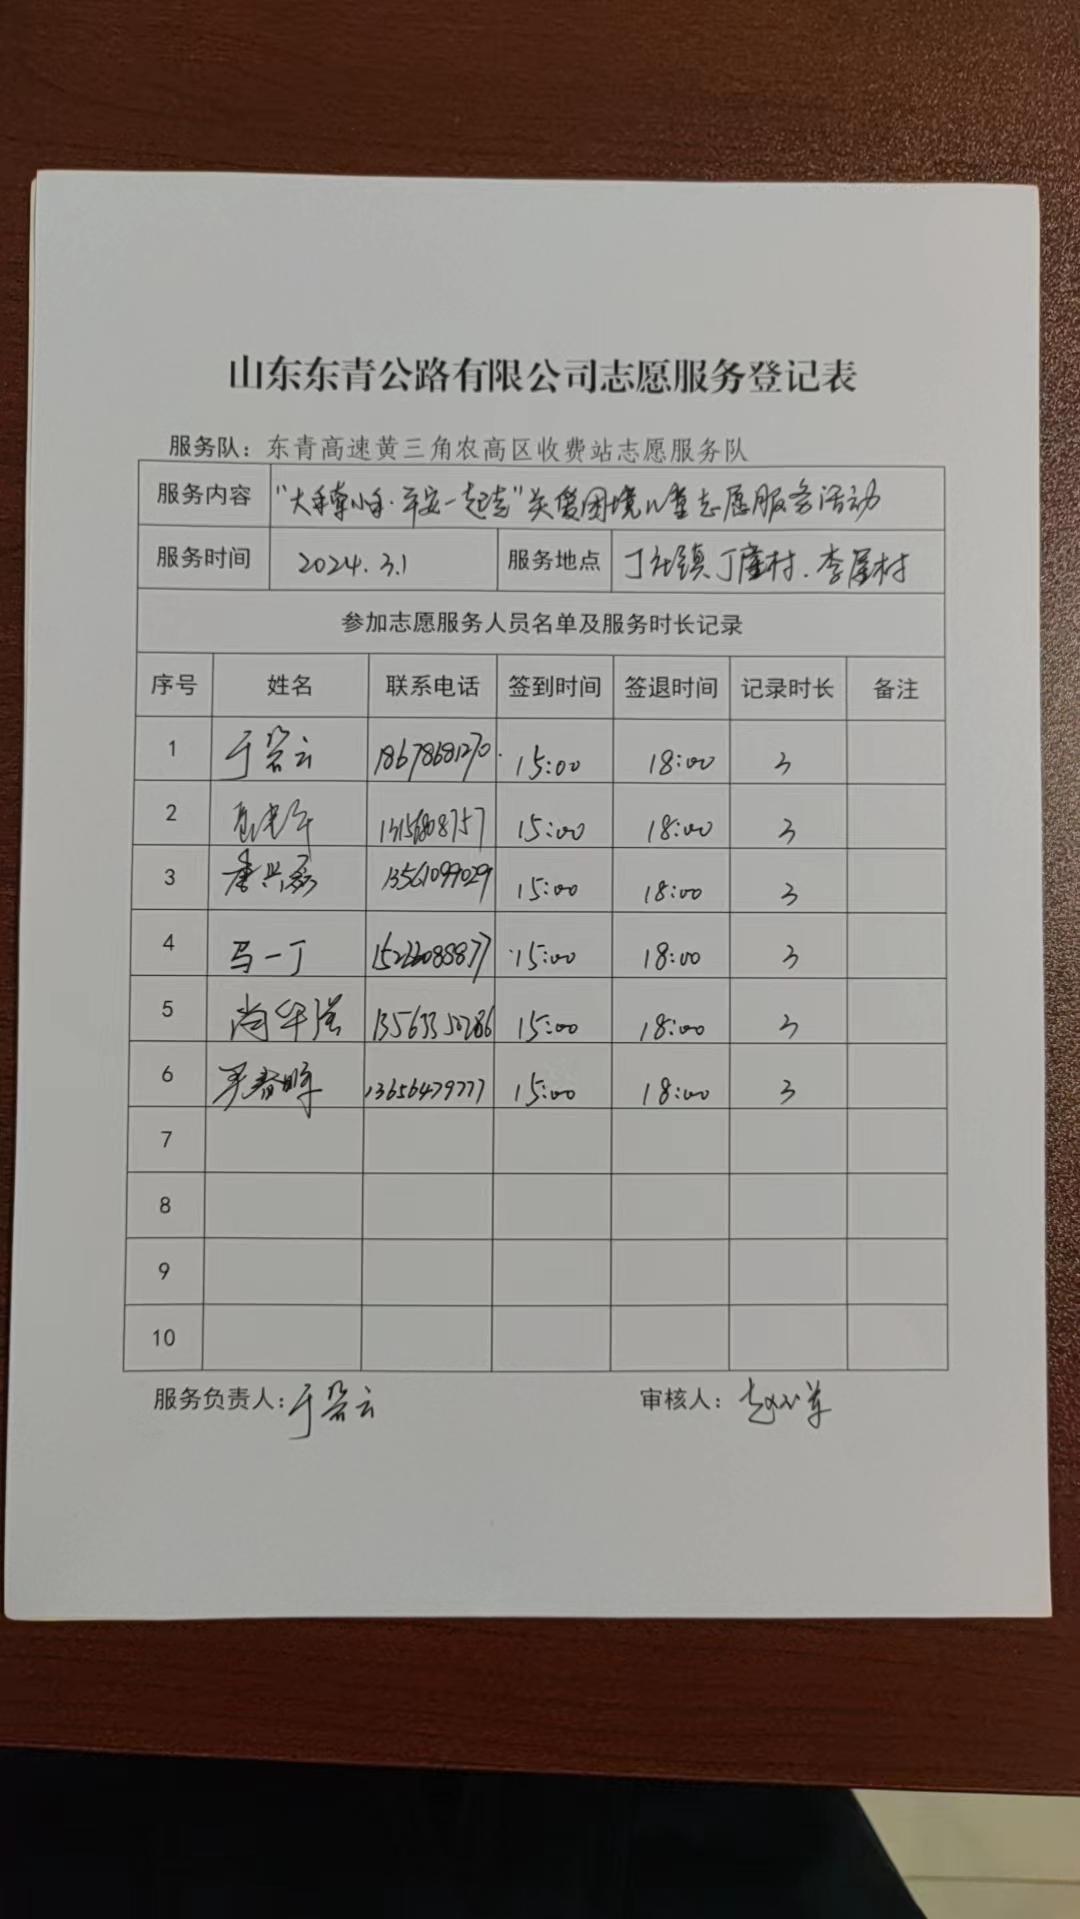 山东东青公路有限公司志愿服务登记表
服务队：东青高速黄三角农高区收费站志愿服务队
服务内容 "大手牵小手·平安一起走"关爱困境儿童志愿服务活动
服务时间 2024.3.1 服务地点 丁庄镇丁屋村、李屋村
参加志愿服务人员名单及服务时长记录
序号 姓名 联系电话 签到时间 签退时间 记录时长 备注
1 于 云 18678681270 15:00 18:00 3
2 15:00 18:00 3
3 唐兴磊 13561099029 15:00 18:00 3
4 马一丁 15:00 18:00 3
5 尚华强 15:00 18:00 3
6 春晖 13656479777 15:00 18:00 3
7
8
9
10
服务负责人：于 云 审核人：赵小军